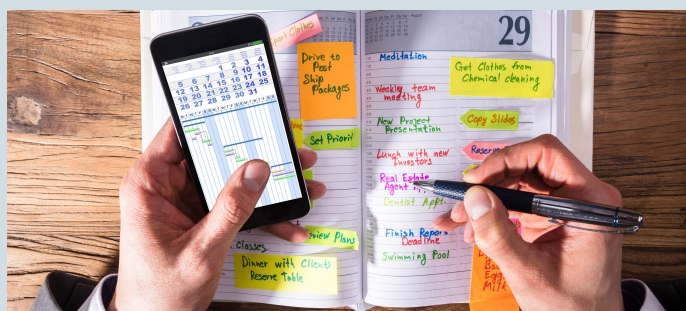 Drive to
Post
Ship
Packages
Set Priority
Plans
Classes
Dinner with Clients
Reserve Table
29
Meditation
Weekly team
meeting
New Project
Presentation
Lunch with new
Investors
Real Estate
Agent
Dentist Appt.
Finish Report
Deadline
Swimming Pool
Get Clothes from
Chemical cleaning
Copy Slides
Reserve
Milk
1 2 3 4
5 6 7 8 9 10 11
12 13 14 15 16 17 18
19 20 21 22 23 24 25
26 27 28 29 30 31